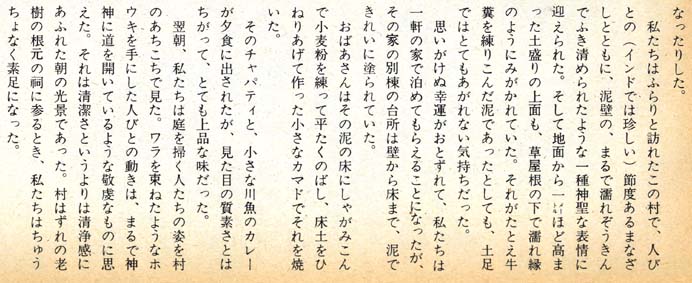 なったりした。
　私たちはふらりと訪れたこの村で、人び
との（インドでは珍しい）節度あるまなざ
しとともに、泥壁の、まるで濡れぞうきん
でふき清められたような一種神聖な表情に
迎えられた。そして地面から一　ほど高ま
った土盛りの上面も、草屋根の下で濡れ縁
のようにみがかれていた。それがたとえ牛
糞を練りこんだ泥であったとしても、土足
ではとてもあがれない気持ちだった。
　思いがけぬ幸運がおとずれて、私たちは
一軒の家で泊めてもらえることになったが、
その家の別棟の台所は壁から床まで、泥で
きれいに塗られていた。
　おばあさんはその泥の床にしゃがみこん
で小麦粉を練って平たくのばし、床土をひ
ねりあげて作った小さなカマドでそれを焼
いた。
　そのチャパティと、小さな川魚のカレー
が夕食に出されたが、見た目の質素さとは
ちがって、とても上品な味だった。
　翌朝、私たちは庭を掃く人たちの姿を村
のあちこちで見た。ワラを束ねたようなホ
ウキを手にした人びとの動きは、まるで神
神に道を開いているような敬虔なものに思
えた。それは清潔さというよりは清浄感に
あふれた朝の光景であった。村はずれの老
樹の根元の祠に参るとき、私たちはちゅう
ちょなく素足になった。